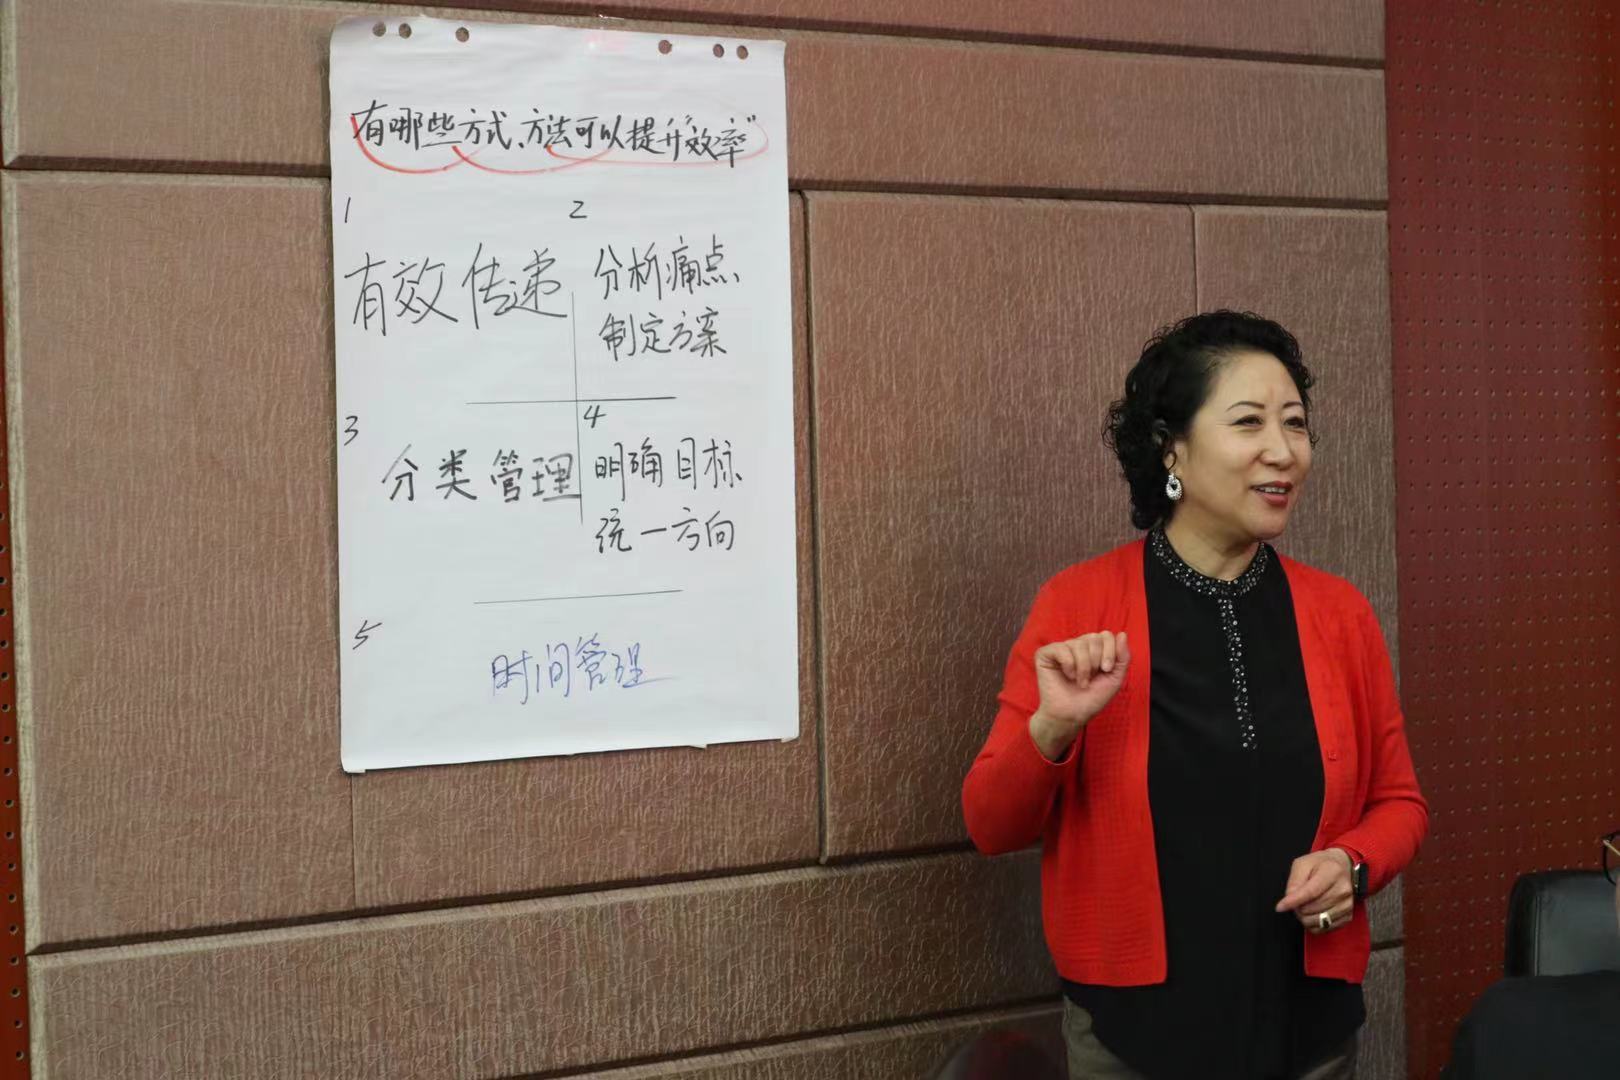 有哪些方式、方法可以提升"效率"
1
有效传递
2
分析痛点、
制定方案
3
分类管理
4
明确目标
统一方向
5
时间管理